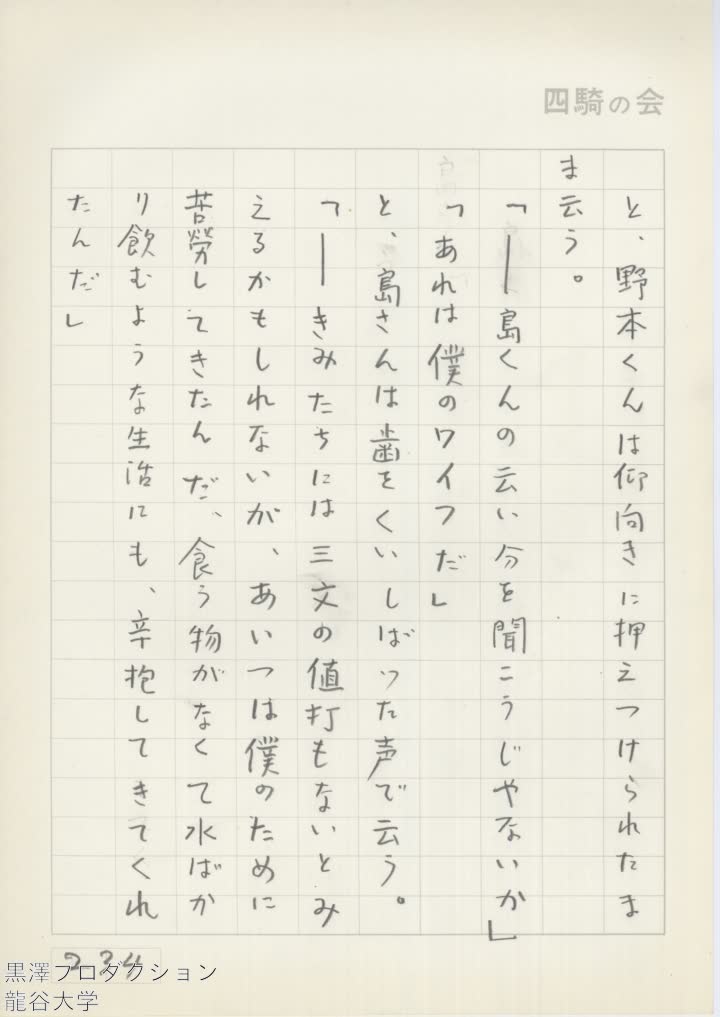 四騎の会
と、野本くんは仰向きに押えつけられたま
ま云う。
「――島くんの云い分を聞こうじやないか」
「あれは僕のワイフだ」
と、島さんは歯をくいしばった声で云う。
「――きみたちには三文の値打もないとみ
えるかもしれないが、あいつは僕のために
苦労してきたんだ、食う物がなくて水ばか
り飲むような生活にも、辛抱してきてくれ
たんだ」
234
黒澤プロダクション
龍谷大学